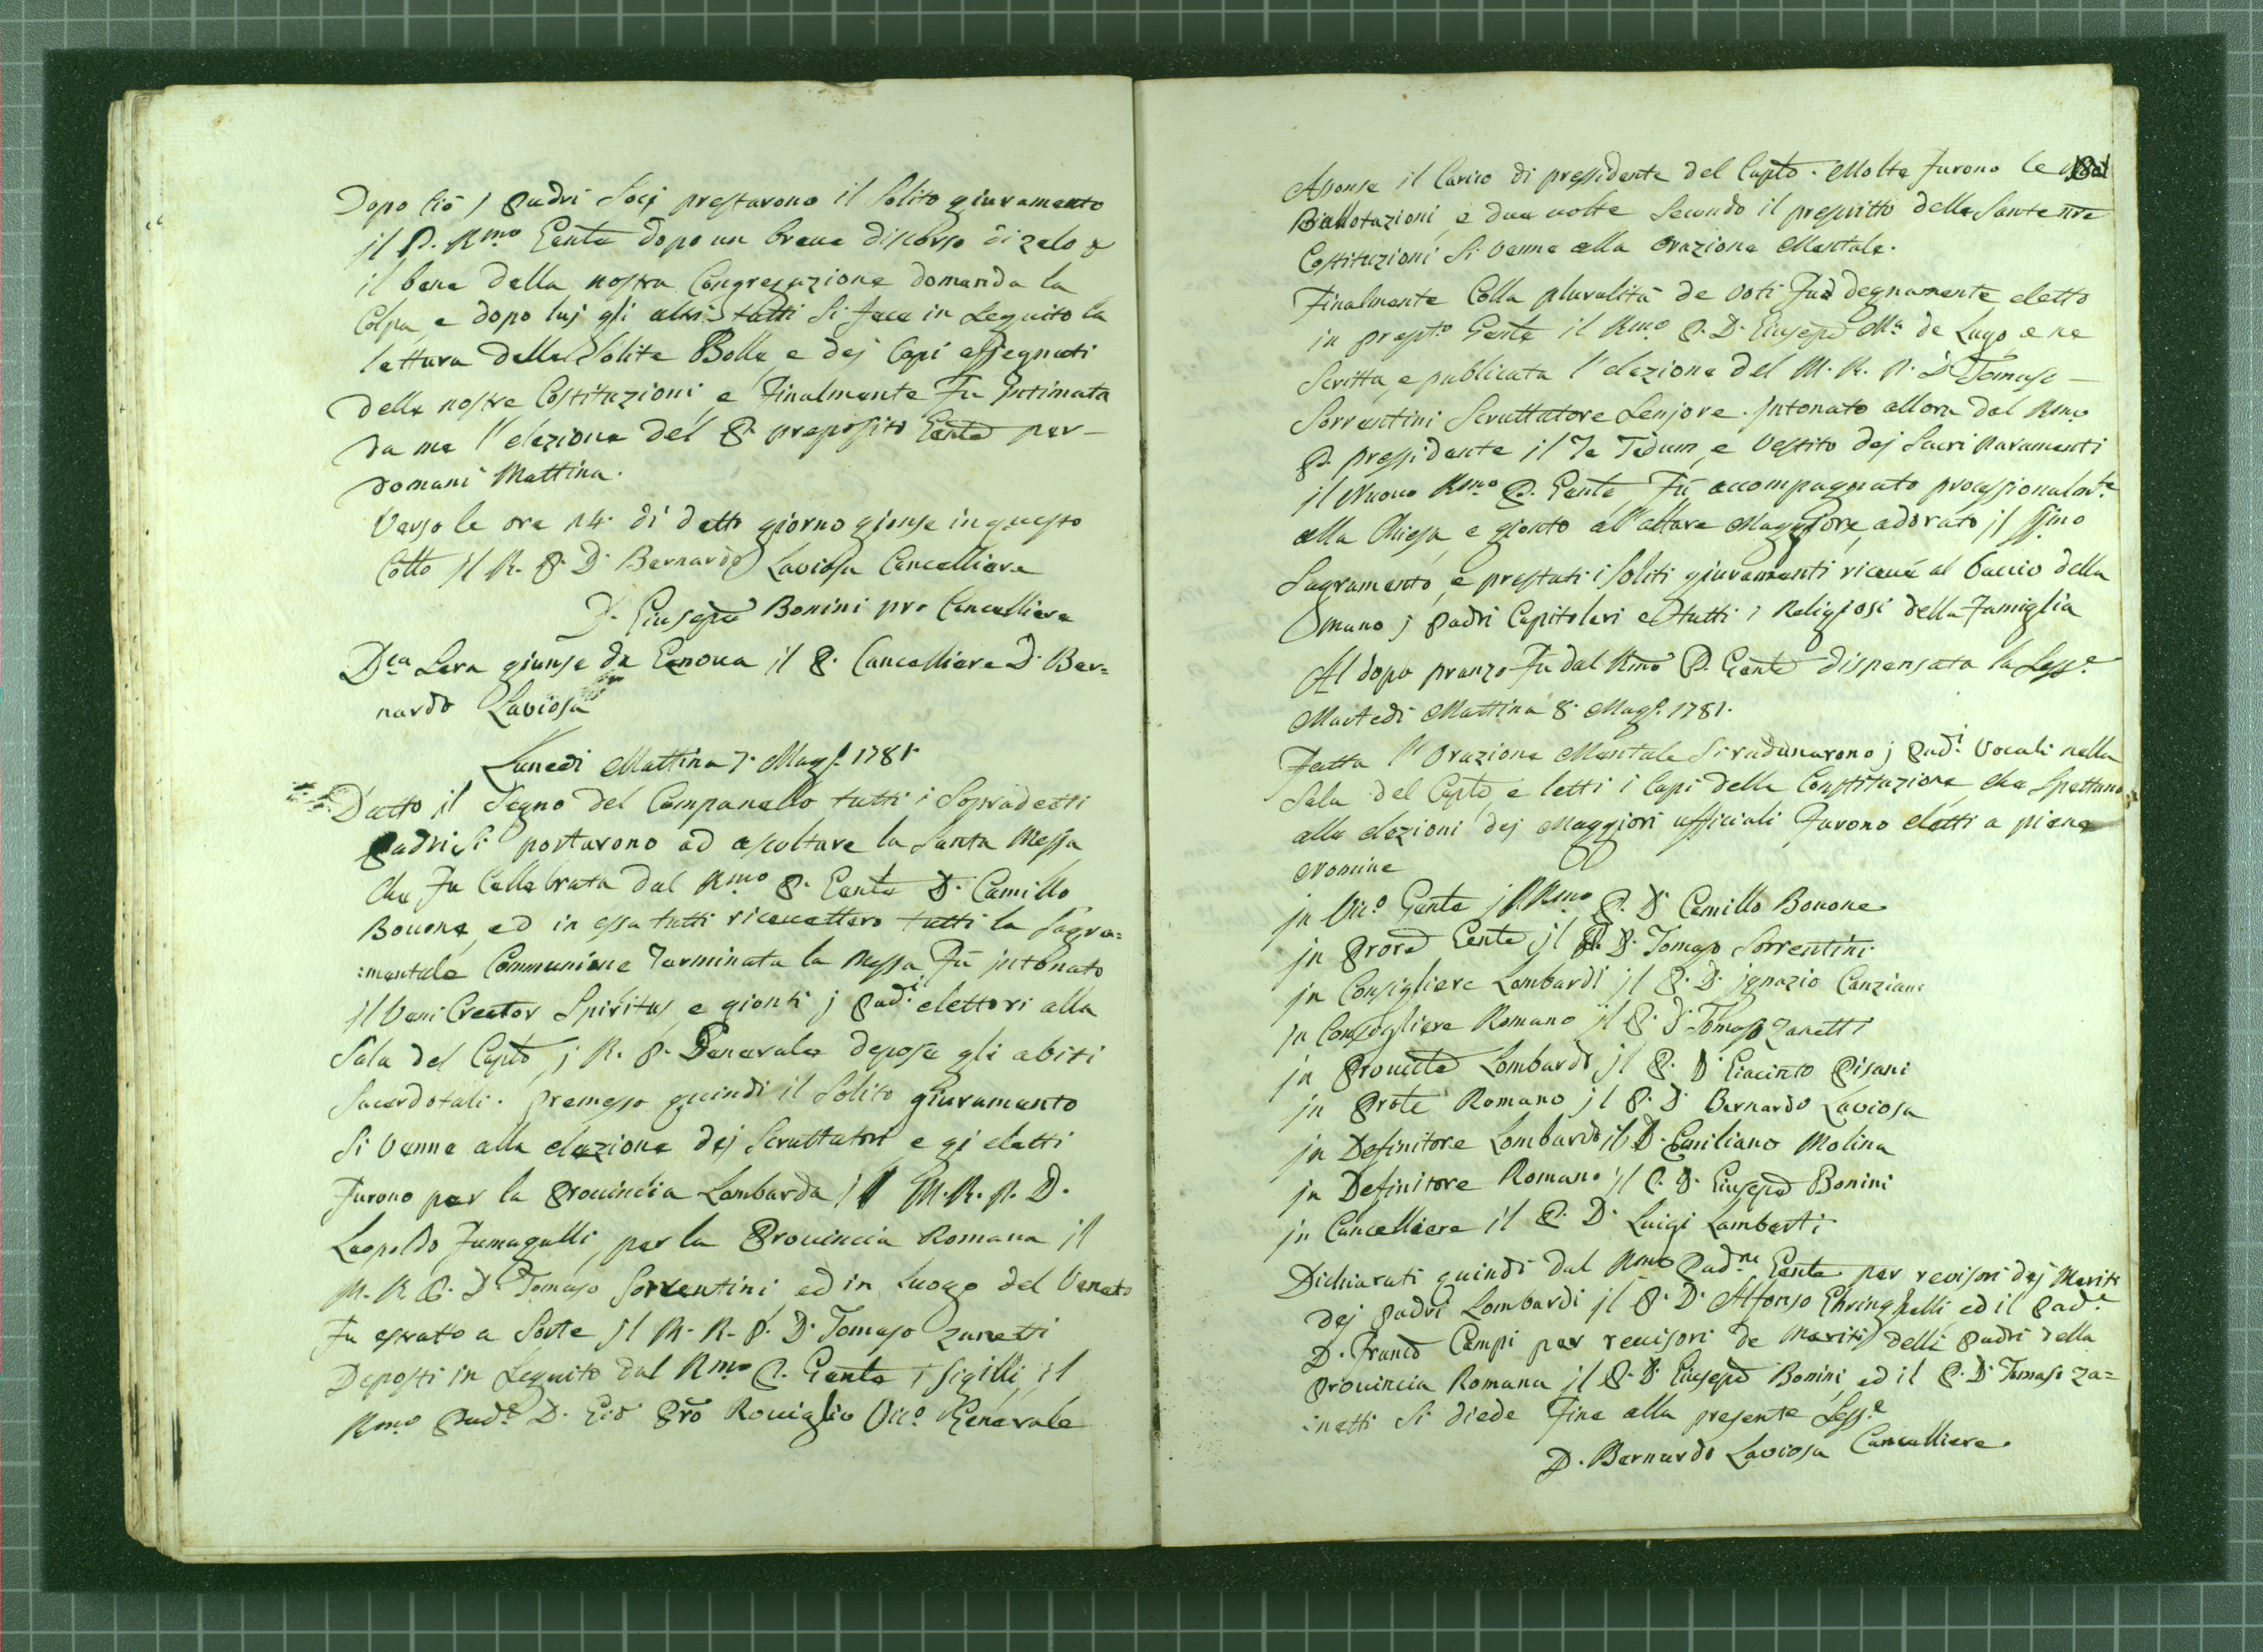 Dopo Ciò j Padri Socj prestarono il Solito giuramento
il P. Rmo Genle dopo un breue discorso di zelo p
il bene della nostra Congregazione domanda la
Colpa, e dopo luj gli altri tutti Si fece in Seguito la
lettura delle Solite Bolle, e dej Capi assegnati
delle nostre Costituzioni, e Finalmente Fu Intimata
da me l'elezione del P. preposito Genle per-
domani Mattina.
Verso le ore 14. di detto giorno gionse in questo
Collo il R. P. D. Bernardo Laviosa Cancelliere
D. Giusepe Bonini pro Cancelliere
Dca Sera giunse da Genoua il P. Cancelliere D. Ber=
nardo Laviosa
Lunedi Mattina 7. Mago. 1781.
Datto il Segno del Campanello tutti i Sopradetti
Padri Si portarono ad ascoltare la Santa Messa
Che Fu Cellebrata dal Rmo P. Genle D. Camillo
Bouone, ed in essa tutti riceuettero tutti la Sagra=
:mentale Communione Terminata la Messa Fù jntonato
il Veni Creator Spiritus, e gionti j Padi. elettori alla
Sala del Caplo, j R. P. Generale depose gli abiti
Sacerdotali. premesso quindi il Solito giuramento
Si Venne alla elezione dej Scruttatori e gj eletti
Furono per la Prouincia Lombarda il M. R. P. D.
Leopoldo Fumagalli, per la Prouincia Romana il
M. R. P. D. Tomaso Sorrentini, ed in Luogo del Veneto
Fu estratto a Sorte il M. R. P. D. Tomaso Zanetti
Deposti in Seguito dal Rmo P. Genle i Sigilli, il
Rmo Pade. D. Gio Pro Rouiglio Vico. Generale
Aponse il Carico di presidente del Caplo. Molte Furono le
Ballotazioni, e due uolte Secondo il prescritto delle Sante nre
Costituzioni Si Venne alla Orazione Mentale.
Finalmente Colla pluralità de Voti Fu degnamente eletto
in prepto. Genle il Rmo P. D. Giusepe Ma. de Lugo, e ne
Scritta, e publicata l'elezione del M. R. P. D. Tomaso
Sorrentini Scruttatore Seniore. Intonato allora dal Rmo
P. presidente il Te Deum, e Vestito dej Sacri Paramenti
il Nuouo Rmo P. Genle, Fù accompagnato processionalmte.
alla Chiesa, e gionto all'altare Maggiore, adorato il SSmo
Sagramento, e prestati i Soliti giuramenti riceué al baccio della
mano j Padri Capitolari e tutti i Religiosi della Famiglia
Al dopo pranzo Fu dal Rmo P. Genle dispensata la Sesse.
Martedi Mattina 8. Mago. 1781.
Fatta l'Orazione Mentale Si radunarono j Padi. Vocali nella
Sala del Caplo, e letti i Capi della Constituzione, che Spettano
alle elezioni dej Maggiori ufficiali Furono eletti a piene
Nomine
jn Vico. Genle il Rmo P. D. Camillo Bouone
jn Prore Genle jl P. D. Tomaso Sorrentini
jn Consigliere Lombardi jl P. D. jgnazio Canziani
jn Consigliere Romano jl P. D. Tomaso Zanetti
jn Prouile Lombardo jl P. D. Giacinto Pisani
jn Prole Romano jl P. D. Bernardo Laviosa
jn Definitore Lombardo il D. Emiliano Molina
jn Definitore Romano jl P. D. Giusepe Bonini
jn Cancelliere il P. D. Luigi Lamberti
Dichiarati quindi dal Rmo Padre Genle per revisori dej Meriti
dej Padri Lombardi jl P. D. Alfonso ed il Pade.
D. Franco Campi per reuisori de Meriti delli Padri della
Prouincia Romana jl P. D. Giusepe Bonini, ed il P. D. Tomaso Za=
:netti Si diede Fine alla presente Sesse.
D. Bernardo Laviosa Cancelliere.